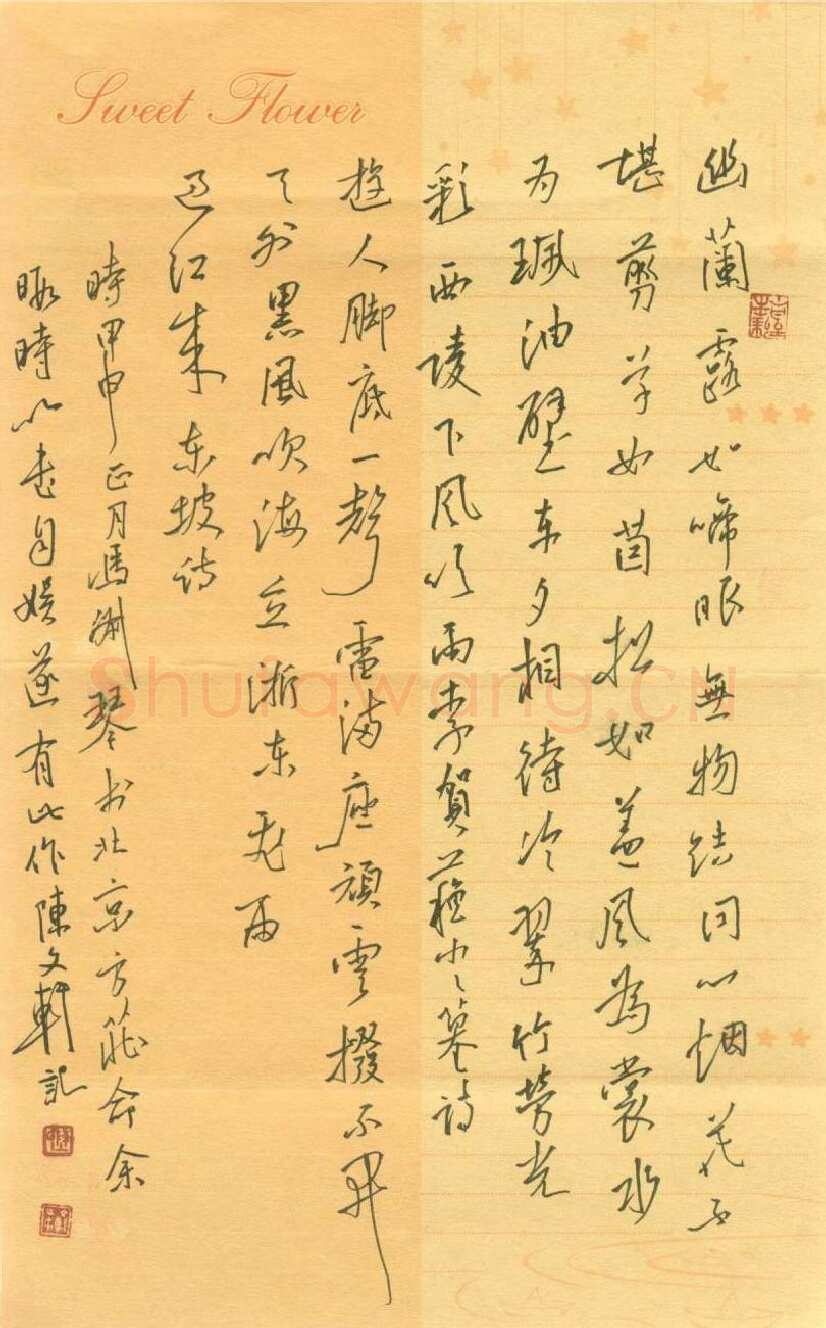 Sweet Flower
幽蘭露如啼眼無物結同心烟花不
堪剪草如茵松如盖風為裳水
为珮油壁车夕相待冷翠竹劳光
彩西陵下风吹雨李賀蘇小小墓诗
遊人脚底一聲雷满座頑雲撥不開
天外黑風吹海立浙东飛雨
过江来东坡诗
時甲申正月馮琴书北京方莊命余
暇時以书自娱遂有此作陳文軒記
Shufawang.CN